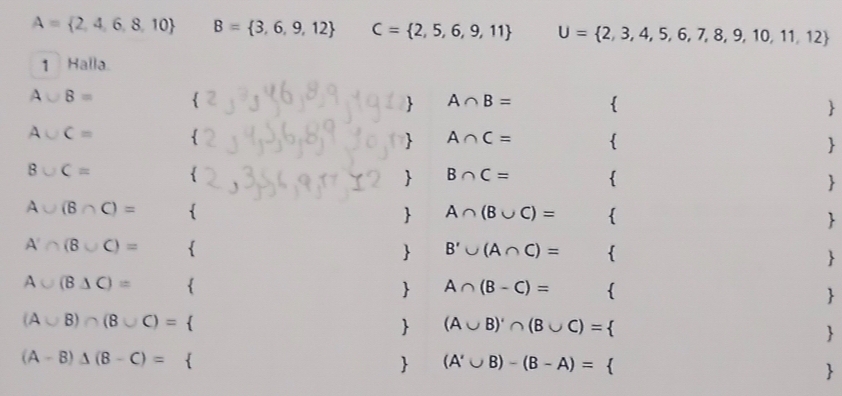 A = {2, 4, 6, 8, 10} B = {3, 6, 9, 12} C = {2, 5, 6, 9, 11} U = {2, 3, 4, 5, 6, 7, 8, 9, 10, 11, 12}
1 Halla.
A ∪ B = {2, 3, 4, 6, 8, 9, 10, 12} A ∩ B = { }
A ∪ C = {2, 4, 5, 6, 8, 9, 10, 11} A ∩ C = { }
B ∪ C = {2, 3, 5, 6, 9, 11, 12} B ∩ C = { }
A ∪ (B ∩ C) = { } A ∩ (B ∪ C) = { }
A' ∩ (B ∪ C) = { } B' ∪ (A ∩ C) = { }
A ∪ (B Δ C) = { } A ∩ (B – C) = { }
(A ∪ B) ∩ (B ∪ C) = { } (A ∪ B)' ∩ (B ∪ C) = { }
(A – B) Δ (B – C) = { } (A' ∪ B) – (B – A) = { }